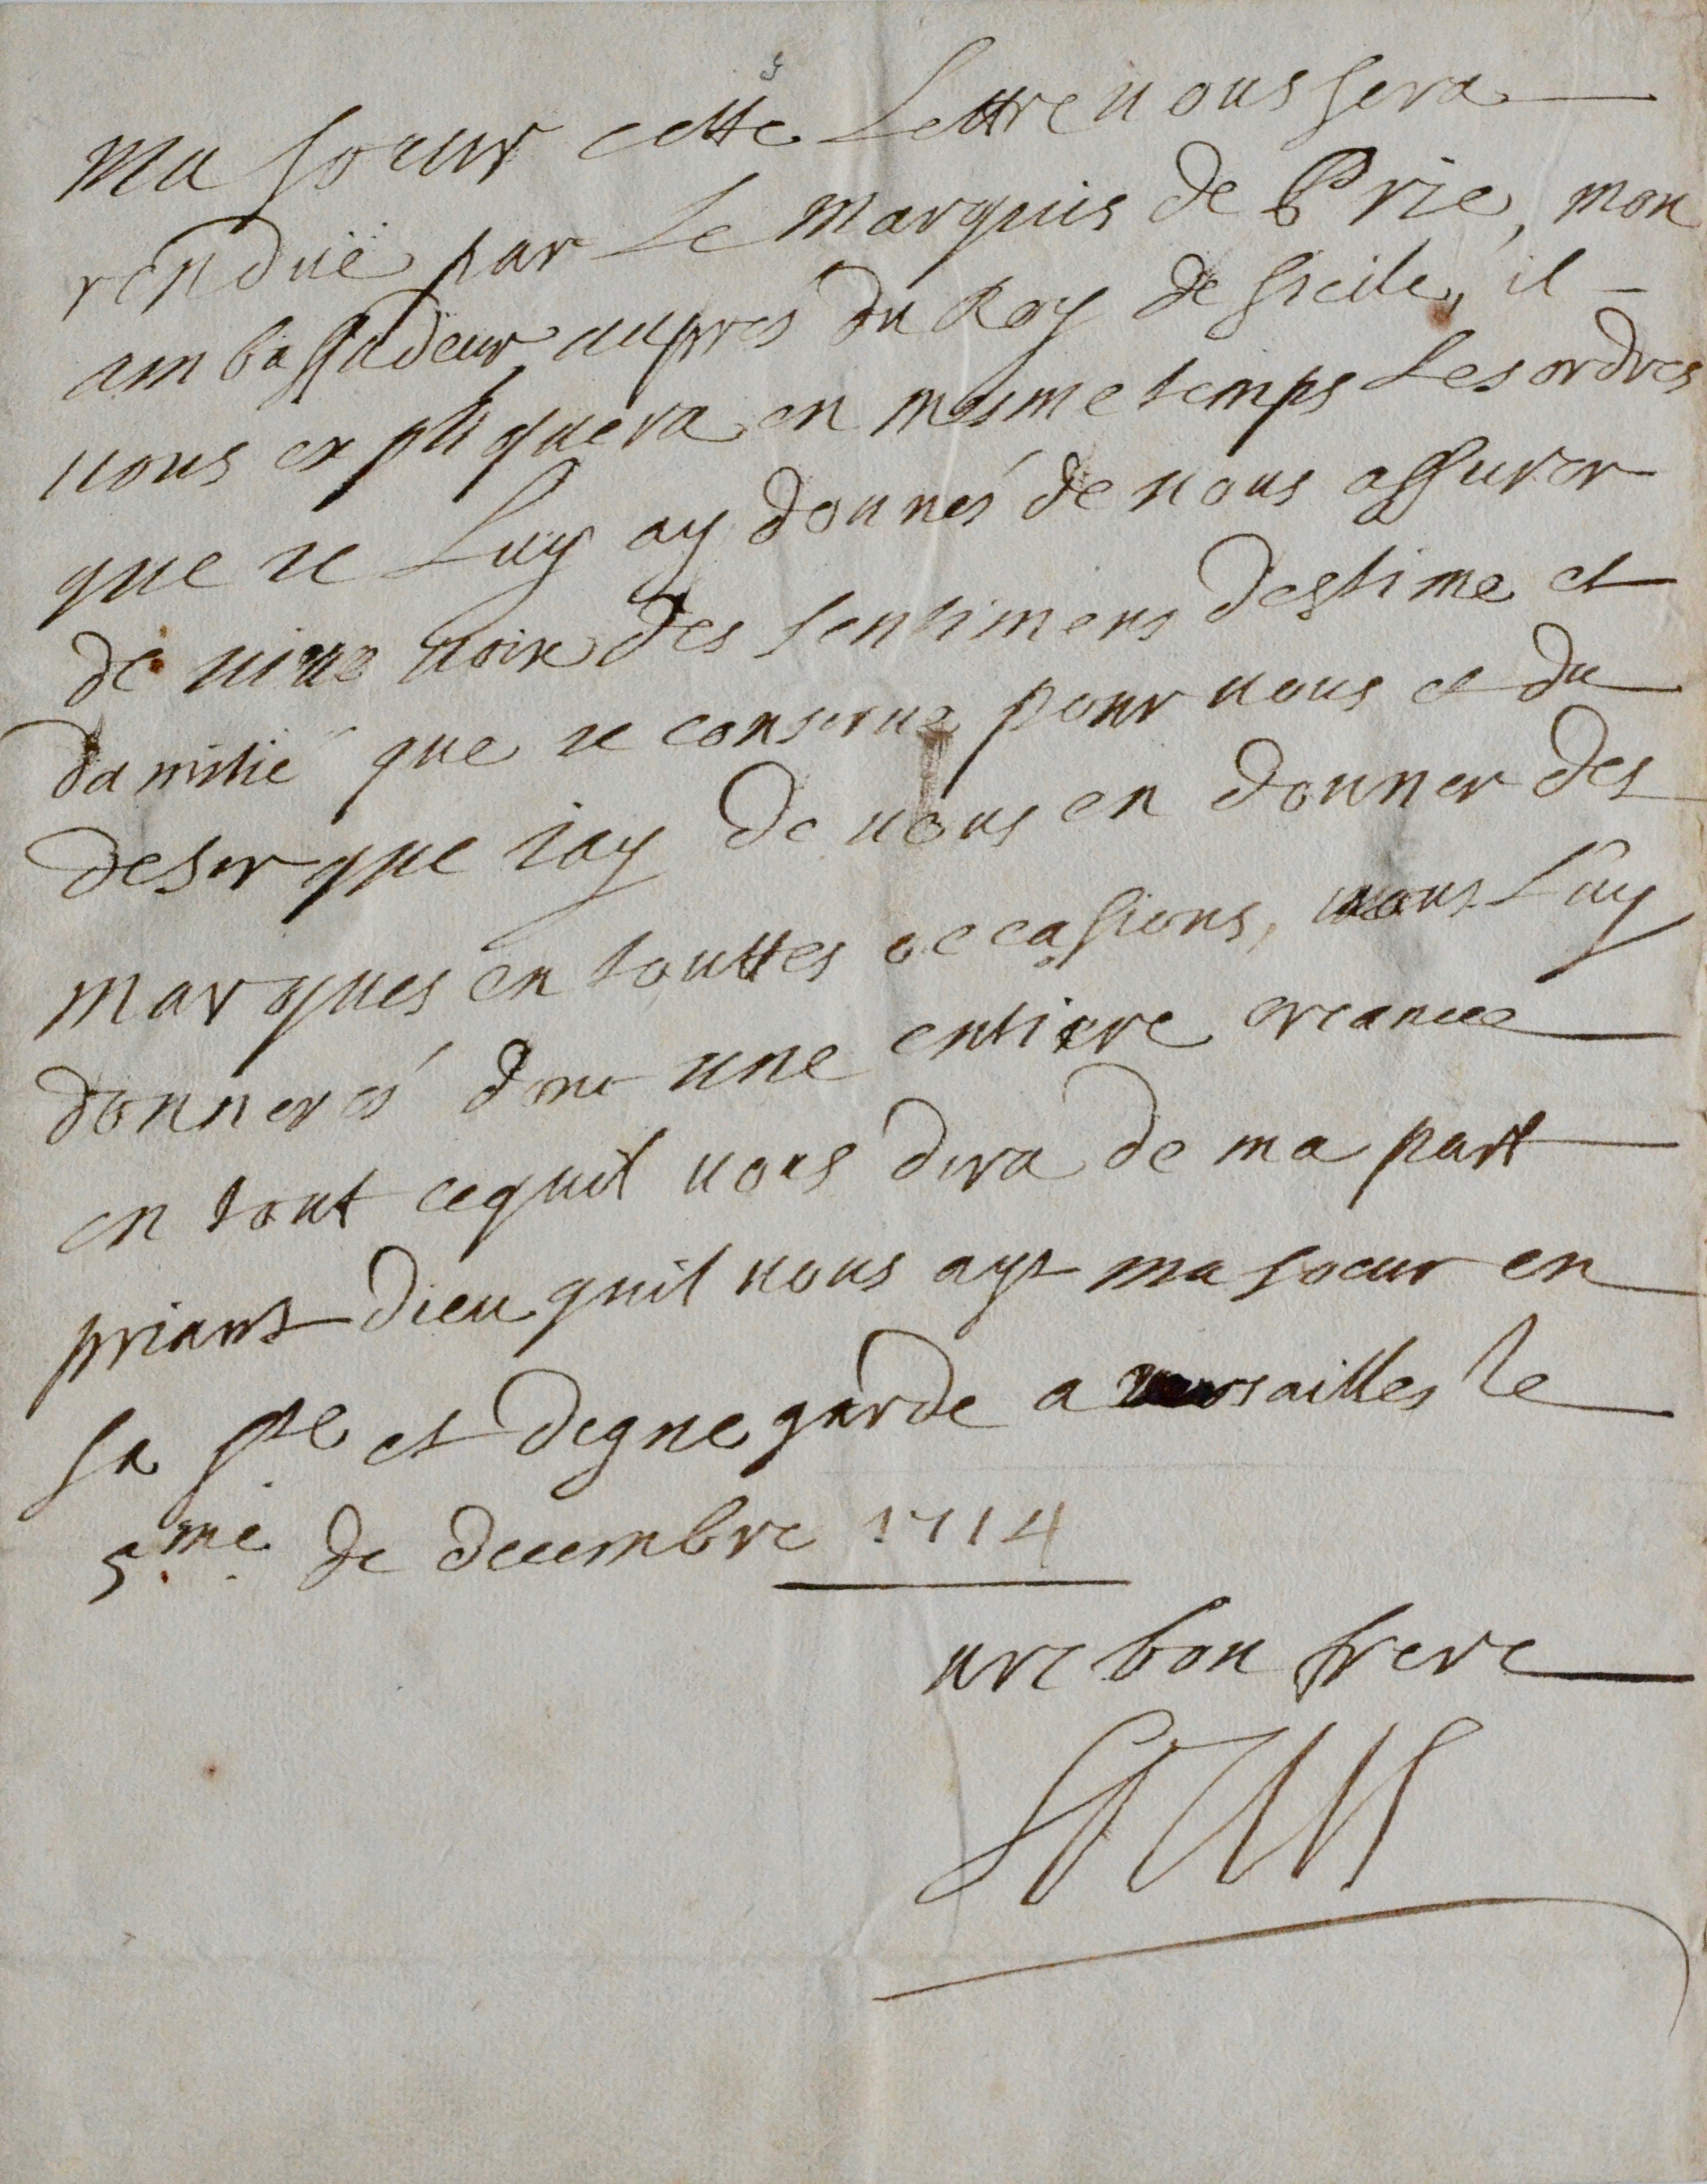 Ma soeur cette Lettre vous sera
renduë par Le Marquis de Prie, mon
ambassadeur aupres du Roy de sicile, il
vous expliquera en mesme temps Les ordres
que ie Luy ay donnés de vous assurer
de vive voix des sentimens destime et
damitié que ie conserve pour vous et du
desir que iay de vous en donner des
marques en touttes occasions, vous Luy
donnerés donc une entiere creance
en tout cequil vous dira de ma part
priant dieu quil vous ayt ma soeur en
sa ste et digne garde a versailles le
5.me. de decembre 1714
vre bon frere
Louis